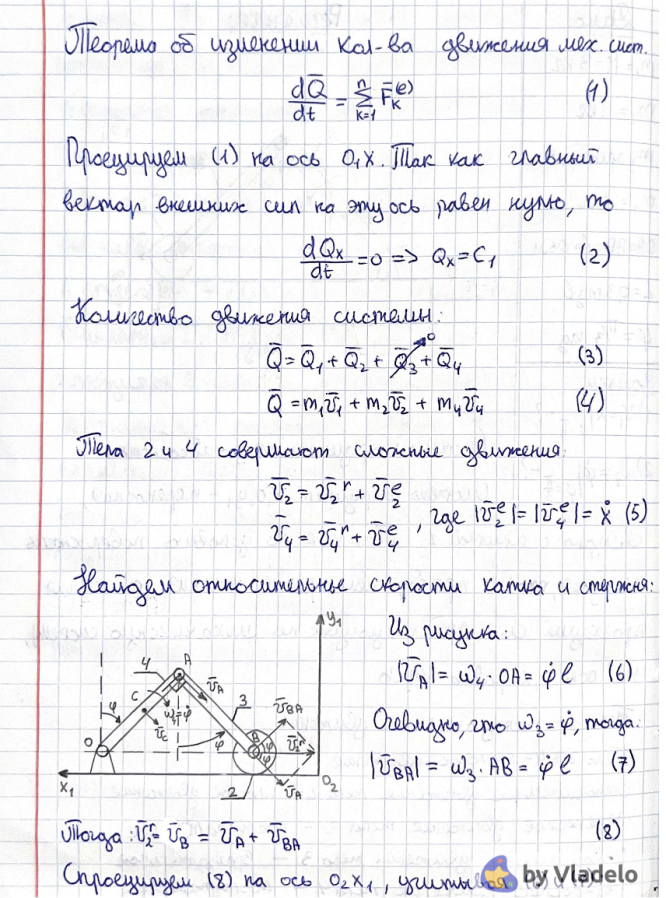 Теорема об изменении кол-ва движения мех. сист.
dQ̄/dt = Σ_{k=1}^{n} F̄_k^{(e)} (1)
Проецируем (1) на ось O₁X. Так как главный
вектор внешних сил на эту ось равен нулю, то
dQₓ/dt = 0 => Qₓ = C₁ (2)
Количество движения системы:
Q̄ = Q̄₁ + Q̄₂ + Q̄₃ + Q̄₄ (3)
0
Q̄ = m₁v̄₁ + m₂v̄₂ + m₄v̄₄ (4)
Тела 2 и 4 совершают сложные движения:
v̄₂ = v̄₂ʳ + v̄₂ᵉ
v̄₄ = v̄₄ʳ + v̄₄ᵉ , где |v̄₂ᵉ| = |v̄₄ᵉ| = ẋ (5)
Найдем относительные скорости катка и стержня:
Из рисунка:
|v̄_A| = ω₄ · OA = φ̇ l (6)
Очевидно, что ω₃ = φ̇, тогда:
|v̄_BA| = ω₃ · AB = φ̇ l (7)
y₁
4 A
v̄_A
C 3
φ v̄_BA
v̄_C φ
B φ
φ
v̄₂ʳ
O
v̄_A
X₁ 2 O₂
Тогда: v̄₂ʳ = v̄_B = v̄_A + v̄_BA (8)
Спроецируем (8) на ось O₂X₁, учитывая
by Vladelo